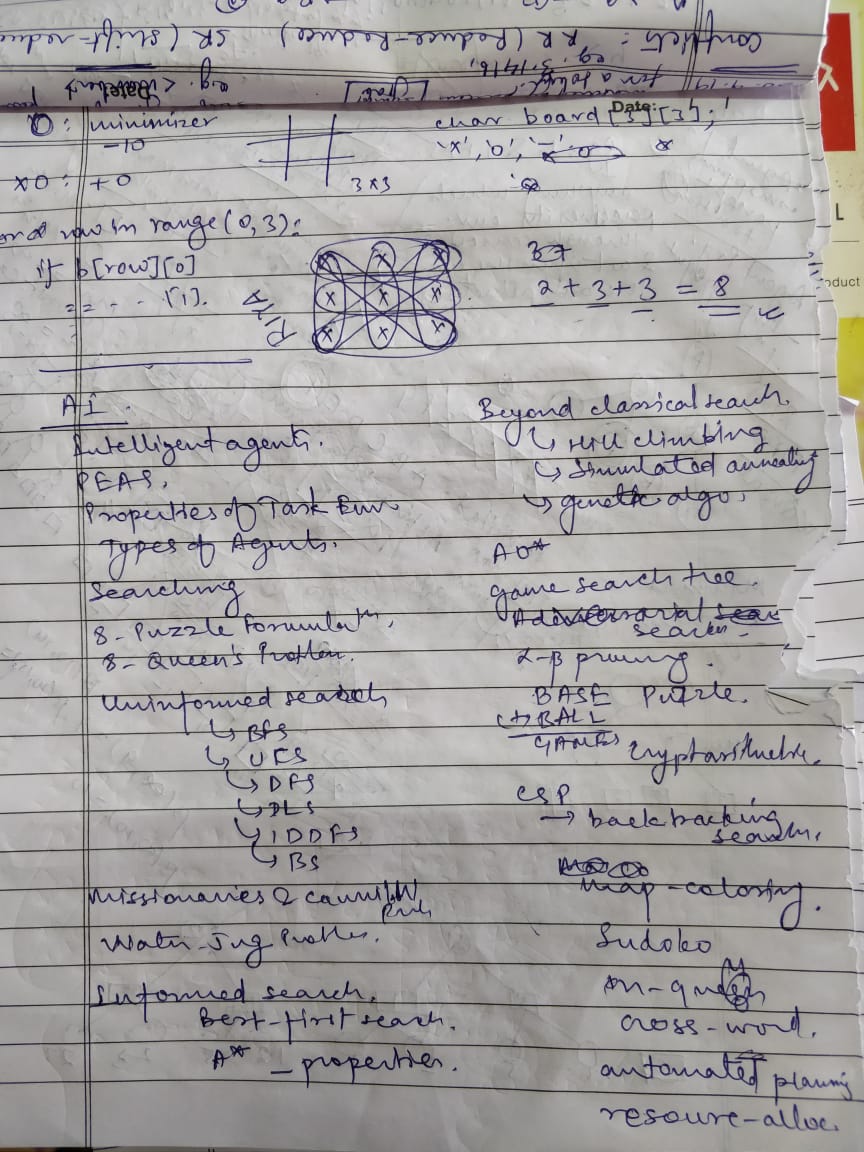 Conflicts : RR (Reduce-Reduce) SR (shift-reduce
e.g.
Date:
O : minimizer
-10
char board [3][3];
'x', 'o', '-'
: +0
3x3
row in range(0,3):
if b[row][0]
== - - [1].
2 + 3 + 3 = 8
AI.
Intelligent agents.
PEAS.
Properties of Task Env
Types of Agents.
Searching
8-Puzzle Formulatn,
8-Queen's Problem.
Uninformed search
↳ BFS
↳ UCS
↳ DFS
↳ DLS
↳ IDDFS
↳ BS
Missionaries & cannibal
Water-Jug Problem.
Informed search.
Best-first search.
A* - properties.
Beyond classical search
↳ Hill climbing
↳ Simulated annealing
↳ genetic algo.
AO*
game search tree.
Adversarial
search
α-β pruning.
BASE Puzzle.
(+) BALL
GAMES
cryptarithmetic.
CSP
→ backtracking
search.
map-coloring.
Sudoko
n-queen
cross-word.
automated planning
resoure-alloc.
duct
L